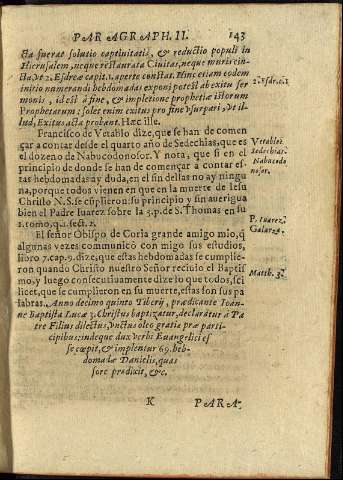 PARAGRAPH. II. 143
cta fuerat solutio captiuitatis, & reductio populi in
Hierusalem, neque restaurata Ciuitas, neque muris cin-
cta, vt 2. Esdreæ capit. 1. aperte constat. Hinc etiam eodem
initio numerandi hebdomadas exponi potest ab exitu ser
monis, id est à fine, & impletione prophetiæ istorum
Prophetarum: solet enim exitus pro fine vsurpari, vt il-
lud, Exitus acta probant. Hæc ille.
2. Esdr. c. 1
Francisco de Vetablo dize, que se han de comen
çar a contar desde el quarto año de Sedechias, que es
el dozeno de Nabucodonosor. Y nota, que si en el
principio de donde se han de començar à contar es-
tas hebdomadas ay duda, en el fin dellas no ay ningu
na, porque todos vienen en que en la muerte de Iesu
Christo N. S. se cũplieron: su principio y fin auerigua
bien el Padre Iuarez sobre la 3. p. de S. Thomas en su
2. tomo, q. 1. sect. 2.
Vetablo.
Sedechias.
Nabucodo
nosor.
P. Iuarez.
El señor Obispo de Coria grande amigo mio, q̃
algunas vezes communicò con migo sus estudios,
libro 7. cap. 9. dize, que estas hebdomadas se cumplie-
ron quando Christo nuestro Señor reciuio el Baptis
mo, y luego consecutiuamente dize lo que todos, sci
licet, que se cumplieron en su muerte, estas son sus pa
labras. Anno decimo quinto Tiberij, prædicante Ioan-
ne Baptista Lucæ 3. Christus baptizatur, declaratur à Pa
tre Filius dilectus, vnctus oleo gratiæ præ parti-
cipibus: indeque dux verbi Euangelici es
se cœpit, & implentur 69. heb-
domadæ Danielis, quas
fore prædixit, &c.
Galarza.
Matth. 3.
K PARA-